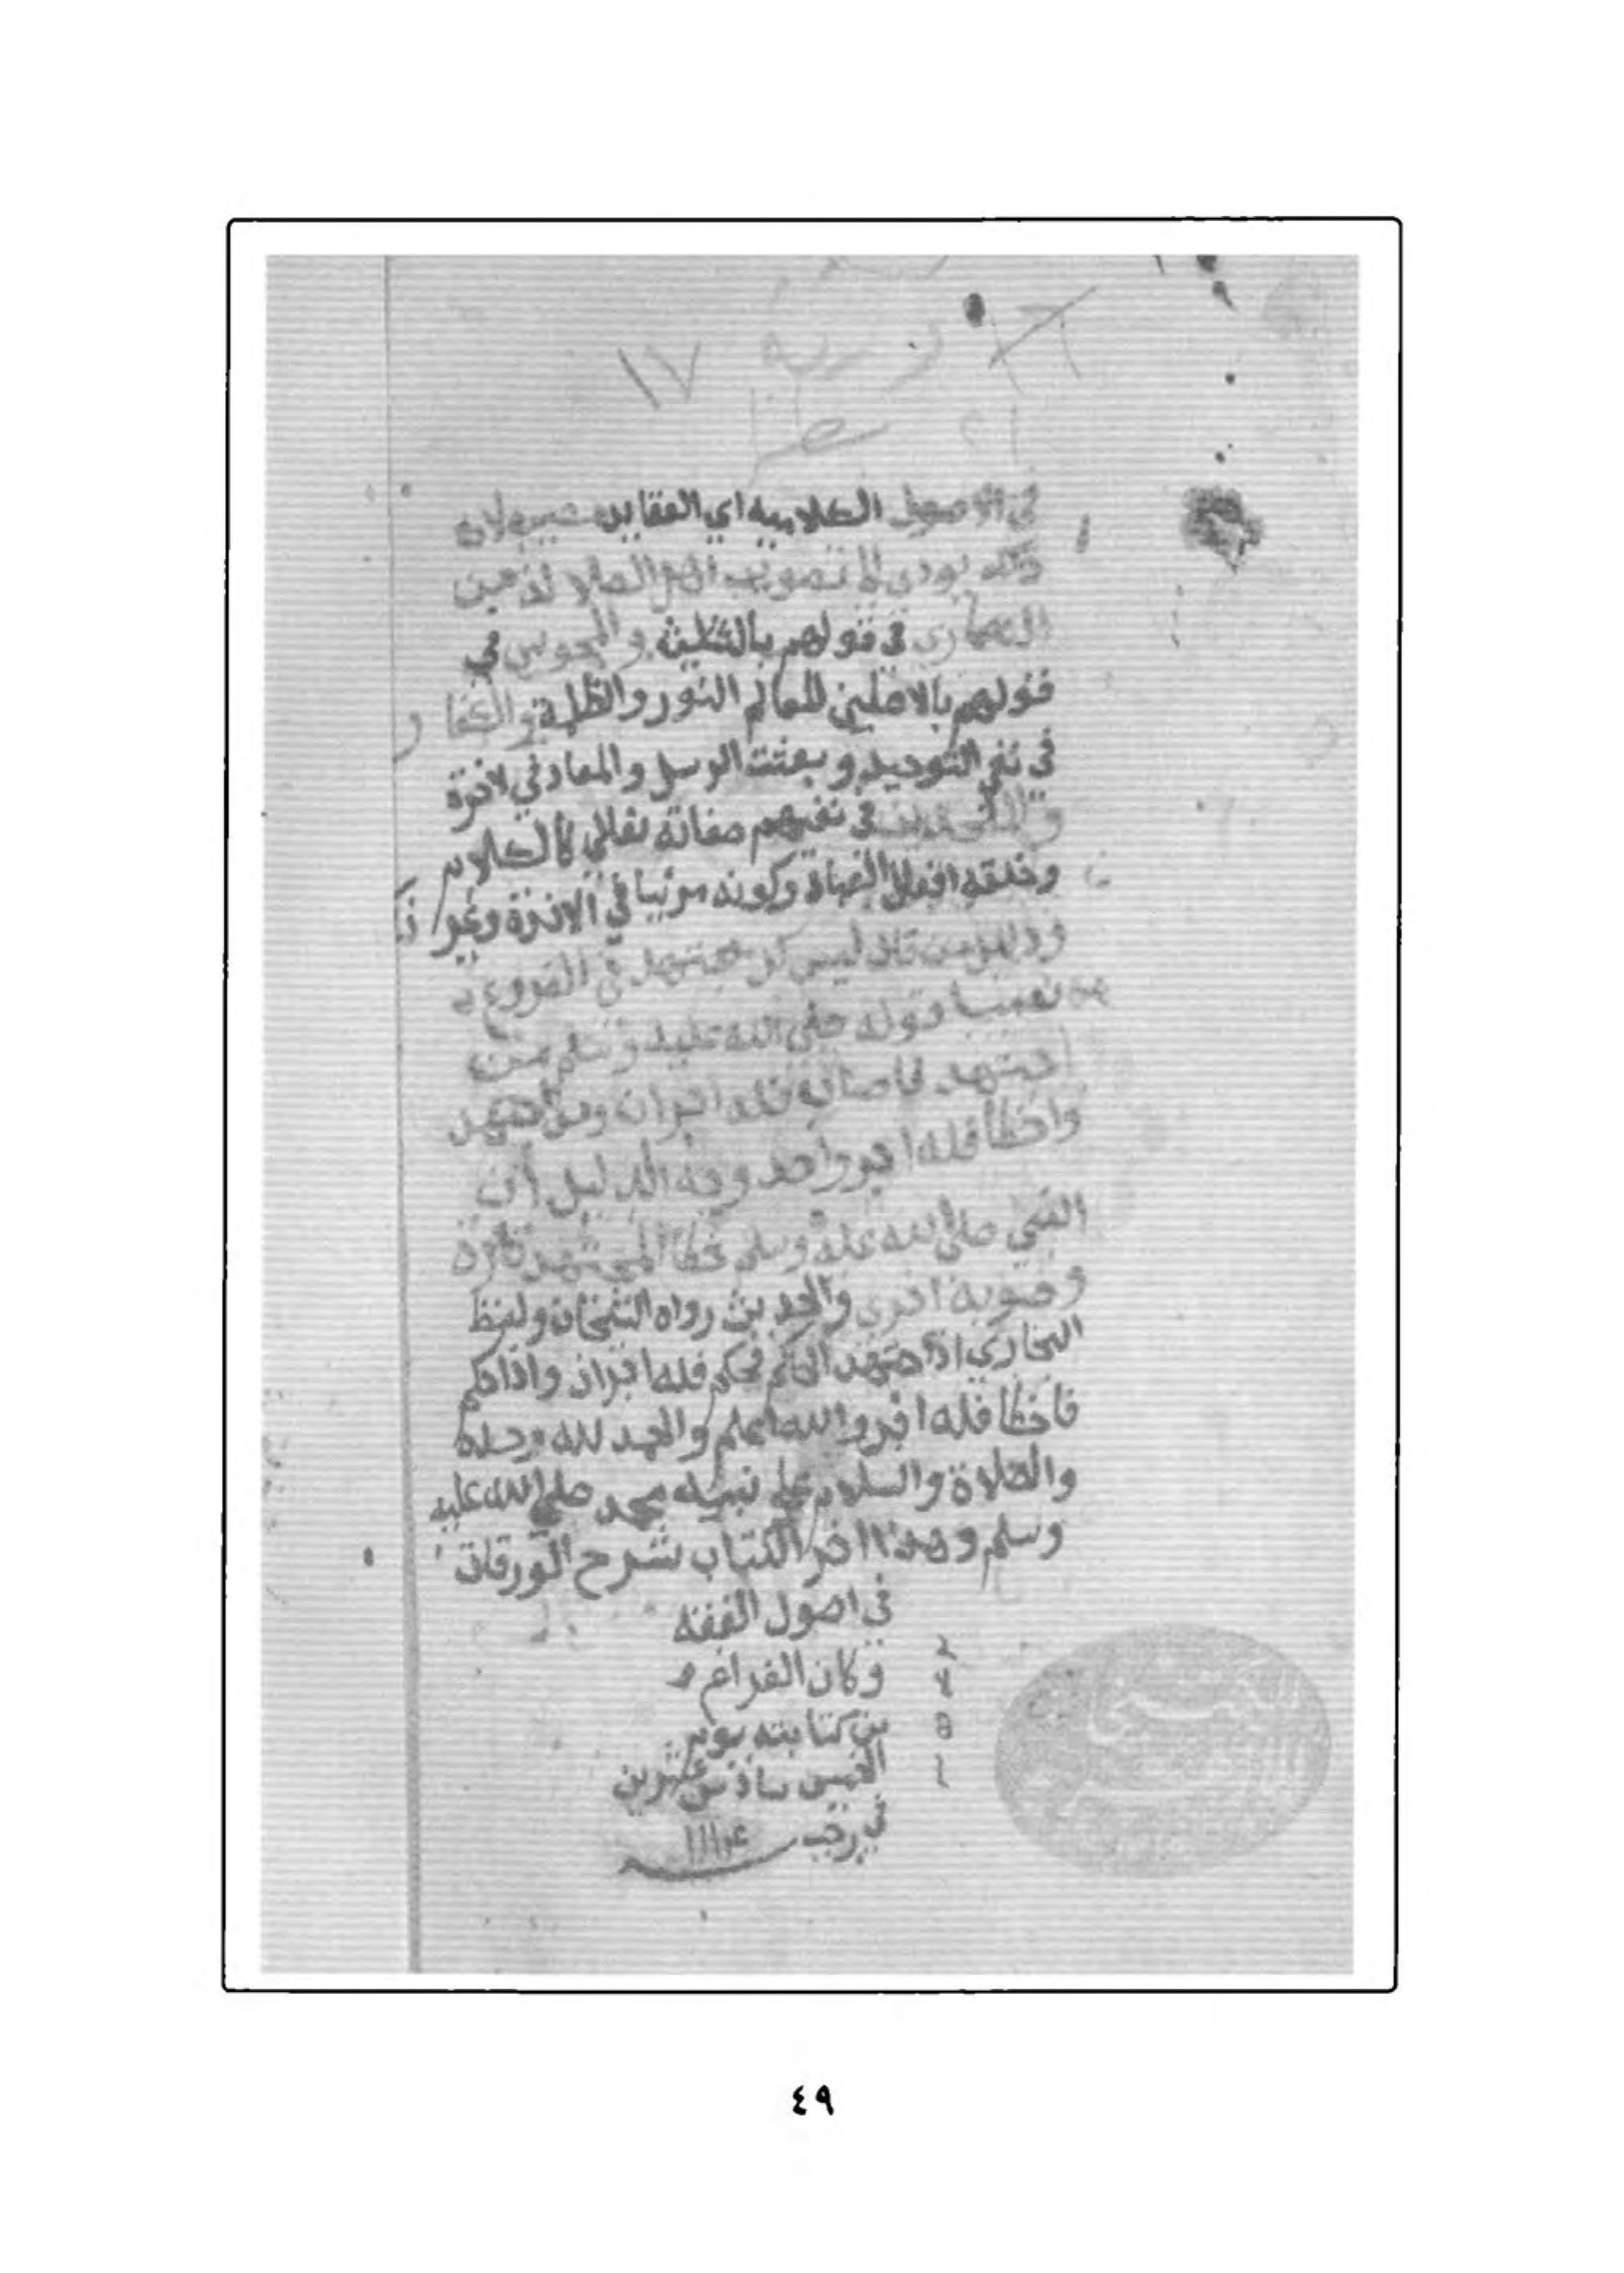 ١٧
في الاصول الكلاميه اي العقايد مصيب لان
ذلك يودي الى تصويب اهل الضلالة من
النصارى في قولهم بالتثليث والمجوس في
قولهم بالاصلين للعالم النور والظلمة والكفار
في نفي التوحيد وبعثت الرسل والمعاد في لاخرة
والملحدين في نفيهم صفاته تعالى كالكلام
وخلقه افعال العباد وكونه مرئيا في الاخرة وغير ذ
ودليل من قال ليس كل مجتهد في الفروع
مصيبا قوله صلى الله عليه وسلم من
اجتهد فاصاب فله اجران ومن اجتهد
واخطا فله اجر واحد وجه الدليل ان
النبي صلى الله عليه وسلم خطا المجتهد تارة
وصوبه اخرى والحديث رواه الشيخان ولفظ
البخاري اذا اجتهد الحاكم فحكم فله اجران واذا حكم
فاخطا فله اجر والله اعلم والحمد لله وحده
والصلاة والسلام على نبيه محمد صلى الله عليه
وسلم وهذا اخر الكتاب بشرح الورقات
في اصول الفقه
وكان الفراغ م
ن كتابته يوم
الخميس سادس عشرين
في رجب
٤٩